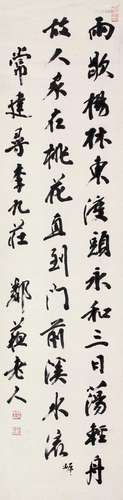 雨歇楊林東渡頭永和三日蕩輕舟
故人家在桃花直到门前溪水流
岸
常建尋李九莊 鄰蘇老人